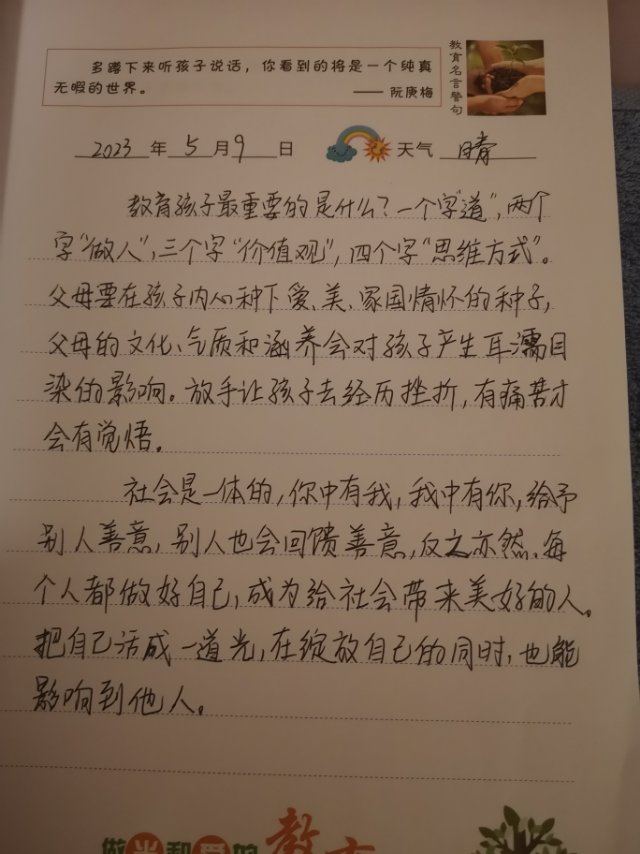 多蹲下来听孩子说话，你看到的将是一个纯真
无暇的世界。
—— 阮庚梅
教育名言警句
2023 年 5 月 9 日 天气 晴
教育孩子最重要的是什么？一个字“道”，两个
字“做人”，三个字“价值观”，四个字“思维方式”。
父母要在孩子内心种下爱、美、家国情怀的种子，
父母的文化、气质和涵养会对孩子产生耳濡目
染的影响。放手让孩子去经历挫折，有痛苦才
会有觉悟。
社会是一体的，你中有我，我中有你，给予
别人善意，别人也会回馈善意，反之亦然。每
个人都做好自己，成为给社会带来美好的人。
把自己活成一道光，在绽放自己的同时，也能
影响到他人。
做光和爱的教育